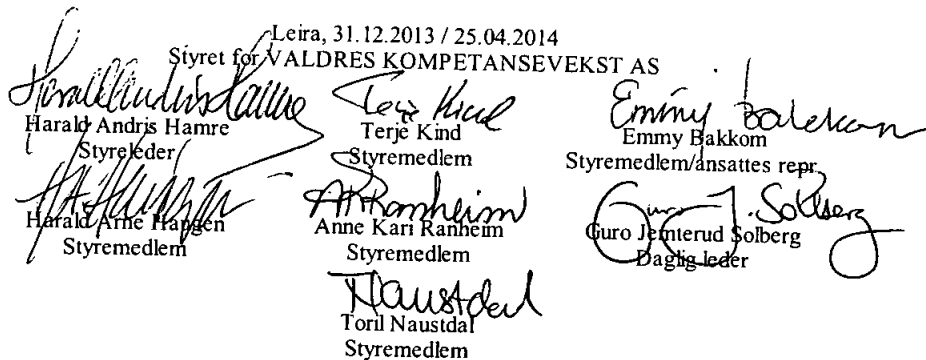 Leira, 31.12.2013 / 25.04.2014
Styret for VALDRES KOMPETANSEVEKST AS
Harald Andris Hamre
Harald Andris Hamre
Styreleder
Terje Kind
Terje Kind
Styremedlem
Emmy Bakkom
Emmy Bakkom
Styremedlem/ansattes repr.
Harald Arne Haugen
Styremedlem
AKRanheim
Anne Kari Ranheim
Styremedlem
Guro J. Solberg
Guro Jemterud Solberg
Daglig leder
TNaustdal
Toril Naustdal
Styremedlem